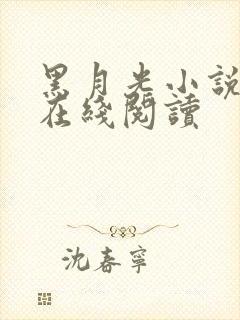 黑月光小說
在綫閱讀
沈春寧